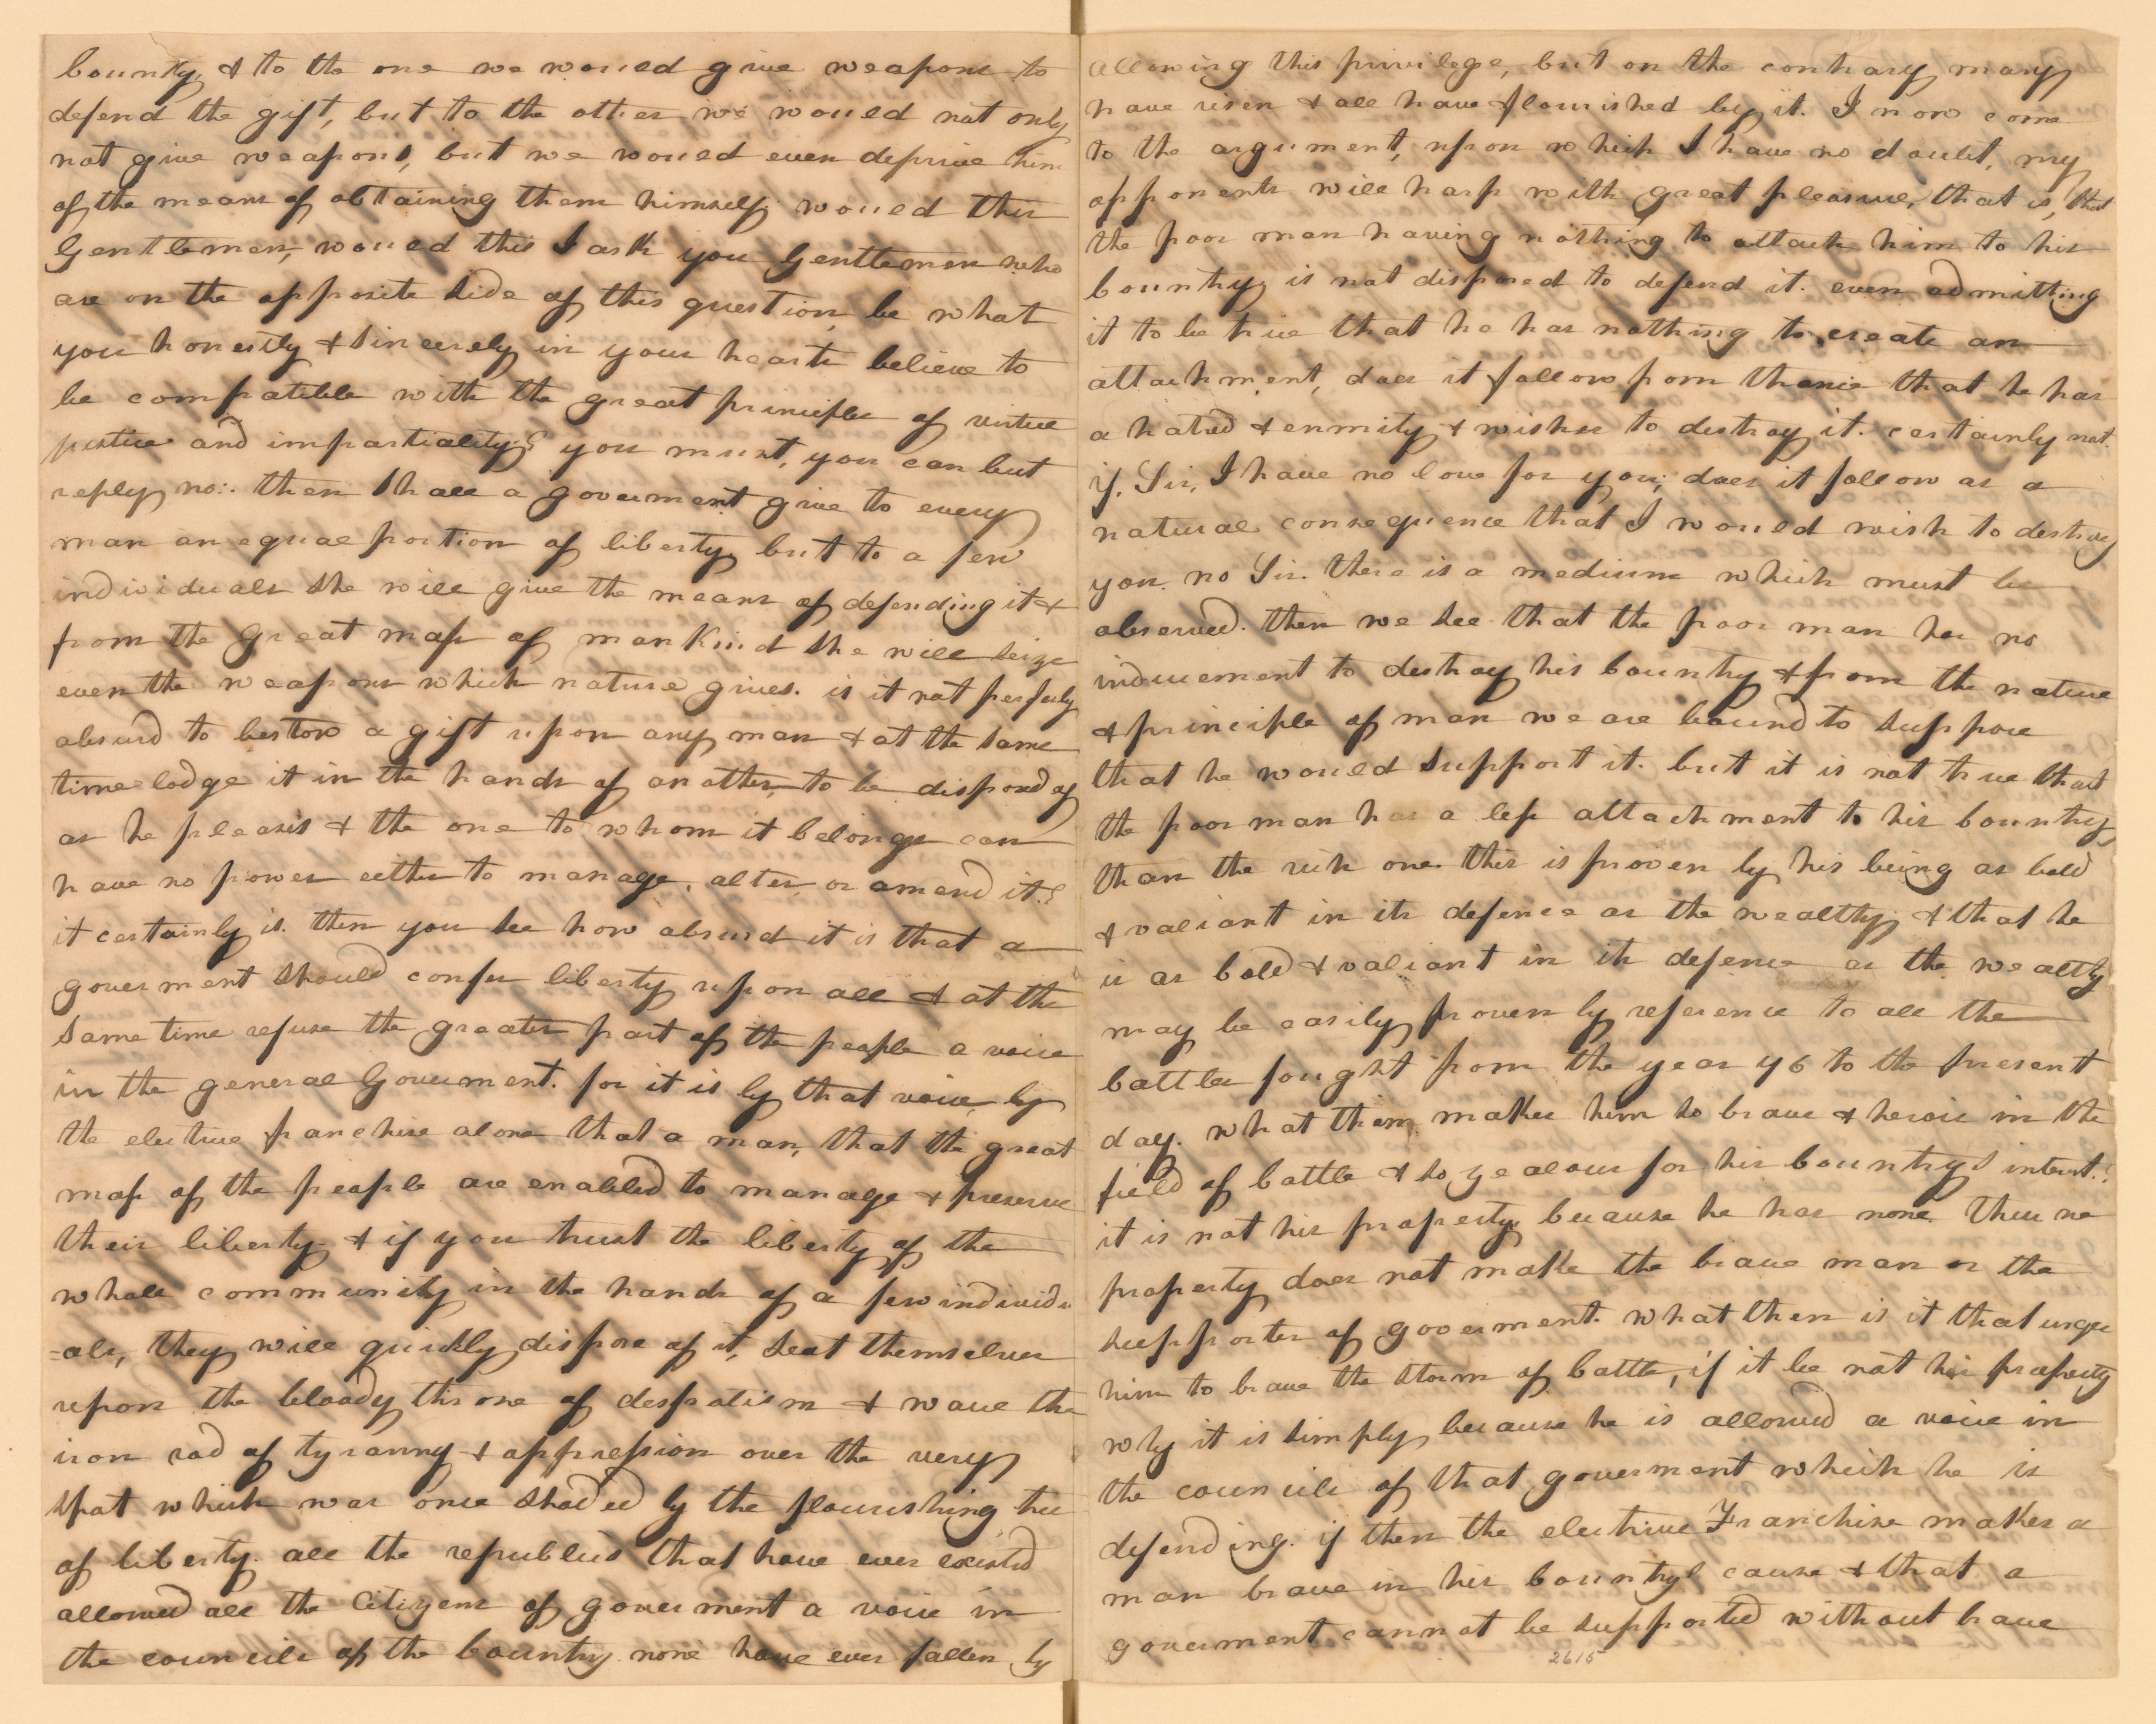 bounty, & to the one we would give weapons to
defend the gift, but to the other we would not only
not give weapons, but we would even deprive him
of the means of obtaining them himself; would this
Gentlemen, would this I ask you Gentlemen who
are on the opposite side of this question, be what
you honestly & sincerely in your hearts believe to
be compatible with the great principles of virtue
justice and impartiality? you must, you can but
reply no:. then shall a goverment give to every
man an equal portion of liberty, but to a few
individuals she will give the means of defending it &
from the great mass of mankind she will seize
even the weapons which nature gives. is it not perfecly
absurd to bestow a gift upon any man & at the same
time lodge it in the hands of another, to be disposed of
as he pleases & the one to whom it belongs can
have no power either to manage, alter or amend it?
it certainly is. then you see how absurd it is that a
goverment should confer liberty upon all & at the
same time refuse the greater part of the people a voice
in the general Goverment. for it is by that voice, by
the elective franchise alone that a man, that the great
mass of the people are enabled to manage & preserve
their liberty. & if you trust the liberty of the
whole community in the hands of a few individu
=als, they will quickly dispose of it, seat themselves
upon the bloody throne of despotism & wave the
iron rod of tyranny & oppression over the very
spot which was once shaded by the flourishing tree
of liberty. all the republics that have ever existed
allowed all the Citizens of goverment a voice in
the councils of the Country. none have ever fallen by
allowing this privilege, but on the contrary many
have risen & all have flourished by it. I now come
to the argument, upon which I have no doubt, my
opponents will harp with great pleasure, that is, that
the poor man having nothing to attach him to his
Country, is not disposed to defend it. even admitting
it to be true that he has nothing to create an
attachment, does it follow from thence that he has
a hatred & enmity & wishes to destroy it. certainly not.
if, Sir, I have no love for you; does it follow as a
natural consequence that I would wish to destroy
you. no Sir. there is a medium which must be
observed. then we see that the poor man has no
inducement to destroy his Country & from the nature
& principle of man we are bound to suppose
that he would support it. but it is not true that
the poor man has a less attachment to his Country,
than the rich one. this is proven by his being as bold
& valiant in its defence as the wealthy; & that he
is as bold & valiant in its defence as the wealthy
may be easily proven by reference to all the
battles fought from the year 76 to the present
day. what then makes him so brave & heroic in the
field of battle & so zealous for his Country's interest.?
it is not his property, because he has none. then no
property does not make the brave man or the
supporter of goverment. what then is it that urges
him to brave the storm of battle, if it be not his property
why it is simply because he is allowed a voice in
the councils of that goverment which he is
defending. if then the elective Franchise makes a
man brave in his Country's cause & that a
goverment cannot be supported without brave
2615